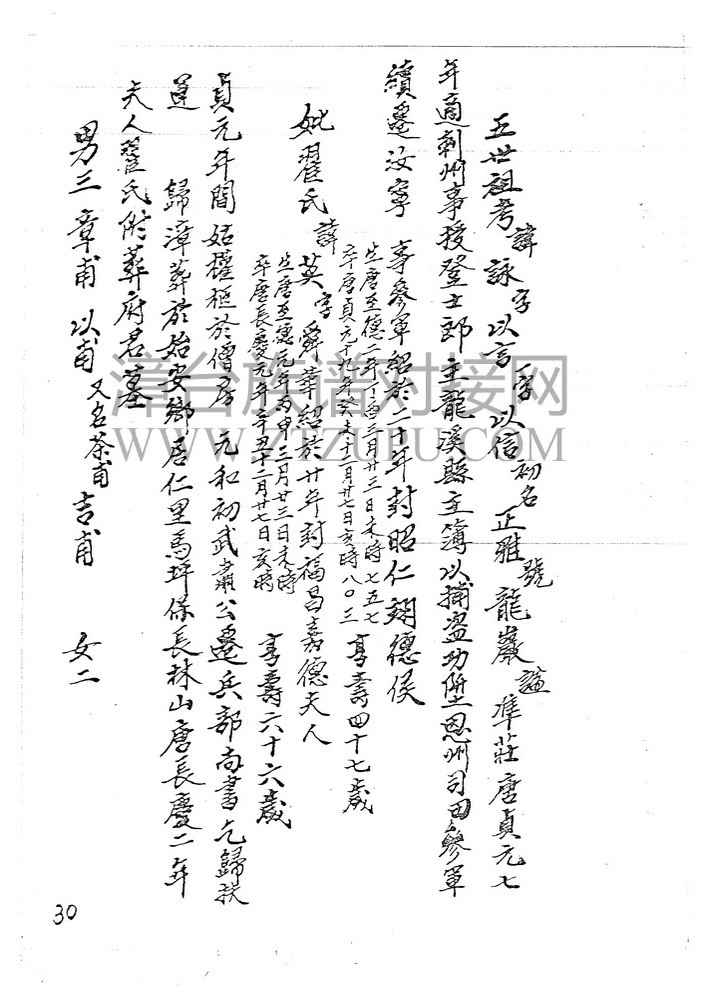 五世祖考諱詠字以言一字以信初名正雅號龍巖謚準莊唐貞元七
年適刺州事授登士郎主龍溪縣主簿以捕盜功陞恩州司田參軍
續遷汝寧 事參軍紹於二十年封昭仁翊德侯
生唐至德二年丁酉三月廿三日未時七五七
卒唐貞元十九年癸未十二月廿七日亥時八〇三
享壽四十七歲
妣翟氏諱英字舜華紹於廿年封福昌嘉德夫人
生唐至德元年丙申二月廿三日未時
卒唐長慶元年辛丑十二月廿七日亥時
享壽六十六歲
貞元年間姑權柩於僧房 元和初武肅公遷兵部尚書乞歸扶
運 歸漳葬於始安鄉居仁里馬坪保長林山唐長慶二年
夫人翟氏附葬府君墓
男三 章甫 以甫又名荼甫 吉甫 女二
30
漳台族谱对接网
WWW.ZTZUPU.COM